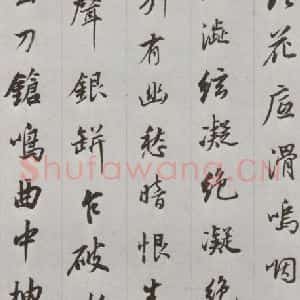 花底滑嗚咽
澁絃凝絶凝絶
有幽愁暗恨生
聲銀缾乍破
刀鎗鳴曲中抽
Shufawang.CN